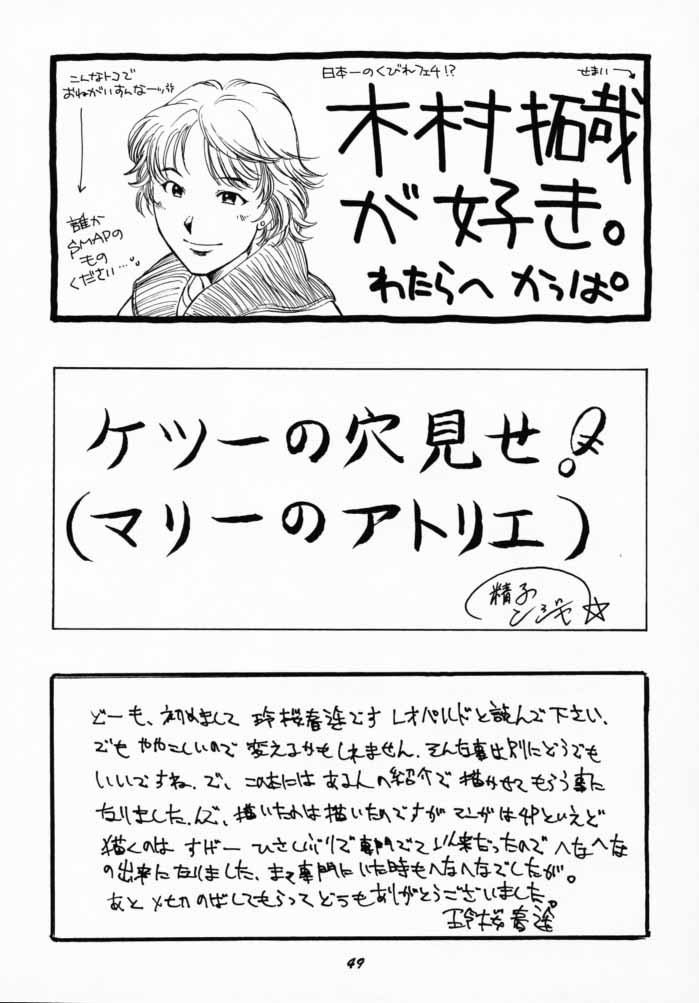 こんなトコで
おねがいすんなーッ!!
誰か
SMAPの
もの
ください…
日本一のくびれフェチ!?
せまい→
木村拓哉
が好き。
わたらへ かっぱ。
ケツーの穴見せ!
(マリーのアトリエ)
精子
ンジャ☆
どーも、初めまして 玲桜春途です レオパルドと読んで下さい、
でも ややこしいので 変えるかもしれません、そんな事は別にどうでも
いいですね。で、この本には ある人の紹介で 描かせて もらう事に
なりました、んで、描いたのは描いたのですが マンガは4Pといえど
描くのは すげー ひさしぶりで専門でて以来だったので へなへな
の出来になりました、まあ専門にいた時もへなへなでしたが。
あと 〆切のばしてもらって どうもありがとうございました。
玲桜春途
49